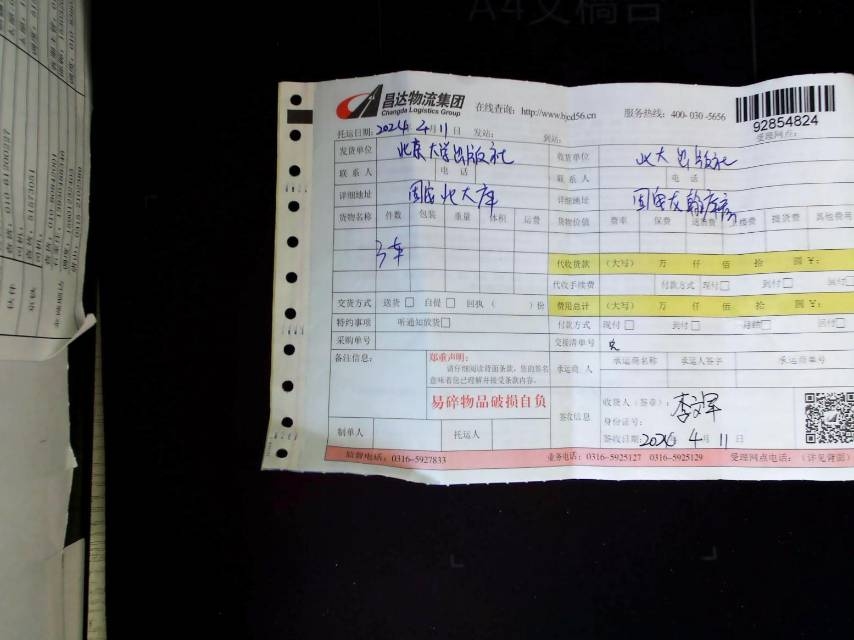 A4文稿台
昌达物流集团
Changda Logistics Group
在线查询: http://www.hjcd56.cn
服务热线: 400-030-5656
92854824
托运日期: 2024年 4月 11日 发站: 到站: 受理网点:
发货单位 北京大学出版社 收货单位 北大出版社
联系人 电话 联系人 电话
详细地址 北大库 详细地址
货物名称 件数 包装 重量 体积 运费 货物价值 费率 保费 送货费 上楼费 提货费 其他费用
3车
代收货款 (大写) 万 仟 佰 拾 圆 ¥:
代收手续费 付款方式 现付□ 到付□ 回付□
交货方式 送货□ 自提□ 回执( )份 费用总计 (大写) 万 仟 佰 拾 圆 ¥:
特约事项 听通知放货□ 付款方式 现付□ 到付□ 月结□ 回付□
采购单号 交接清单号
备注信息: 郑重声明: 承运商人 承运商名称 承运人签字 承运商单号
请仔细阅读背面条款,您的签名
意味着您已理解并接受条款内容。
易碎物品破损自负
签收信息 收货人(签章): 李文军
身份证号:
制单人 托运人 签收日期: 2024年 4月 11日
监督电话: 0316-5927833 业务电话: 0316-5925127 0316-5925129 受理网点电话: (详见背面)